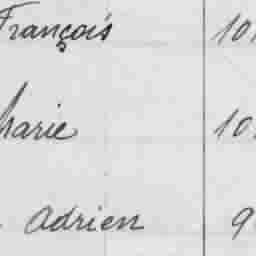 François 10
Marie 10
Adrien 9